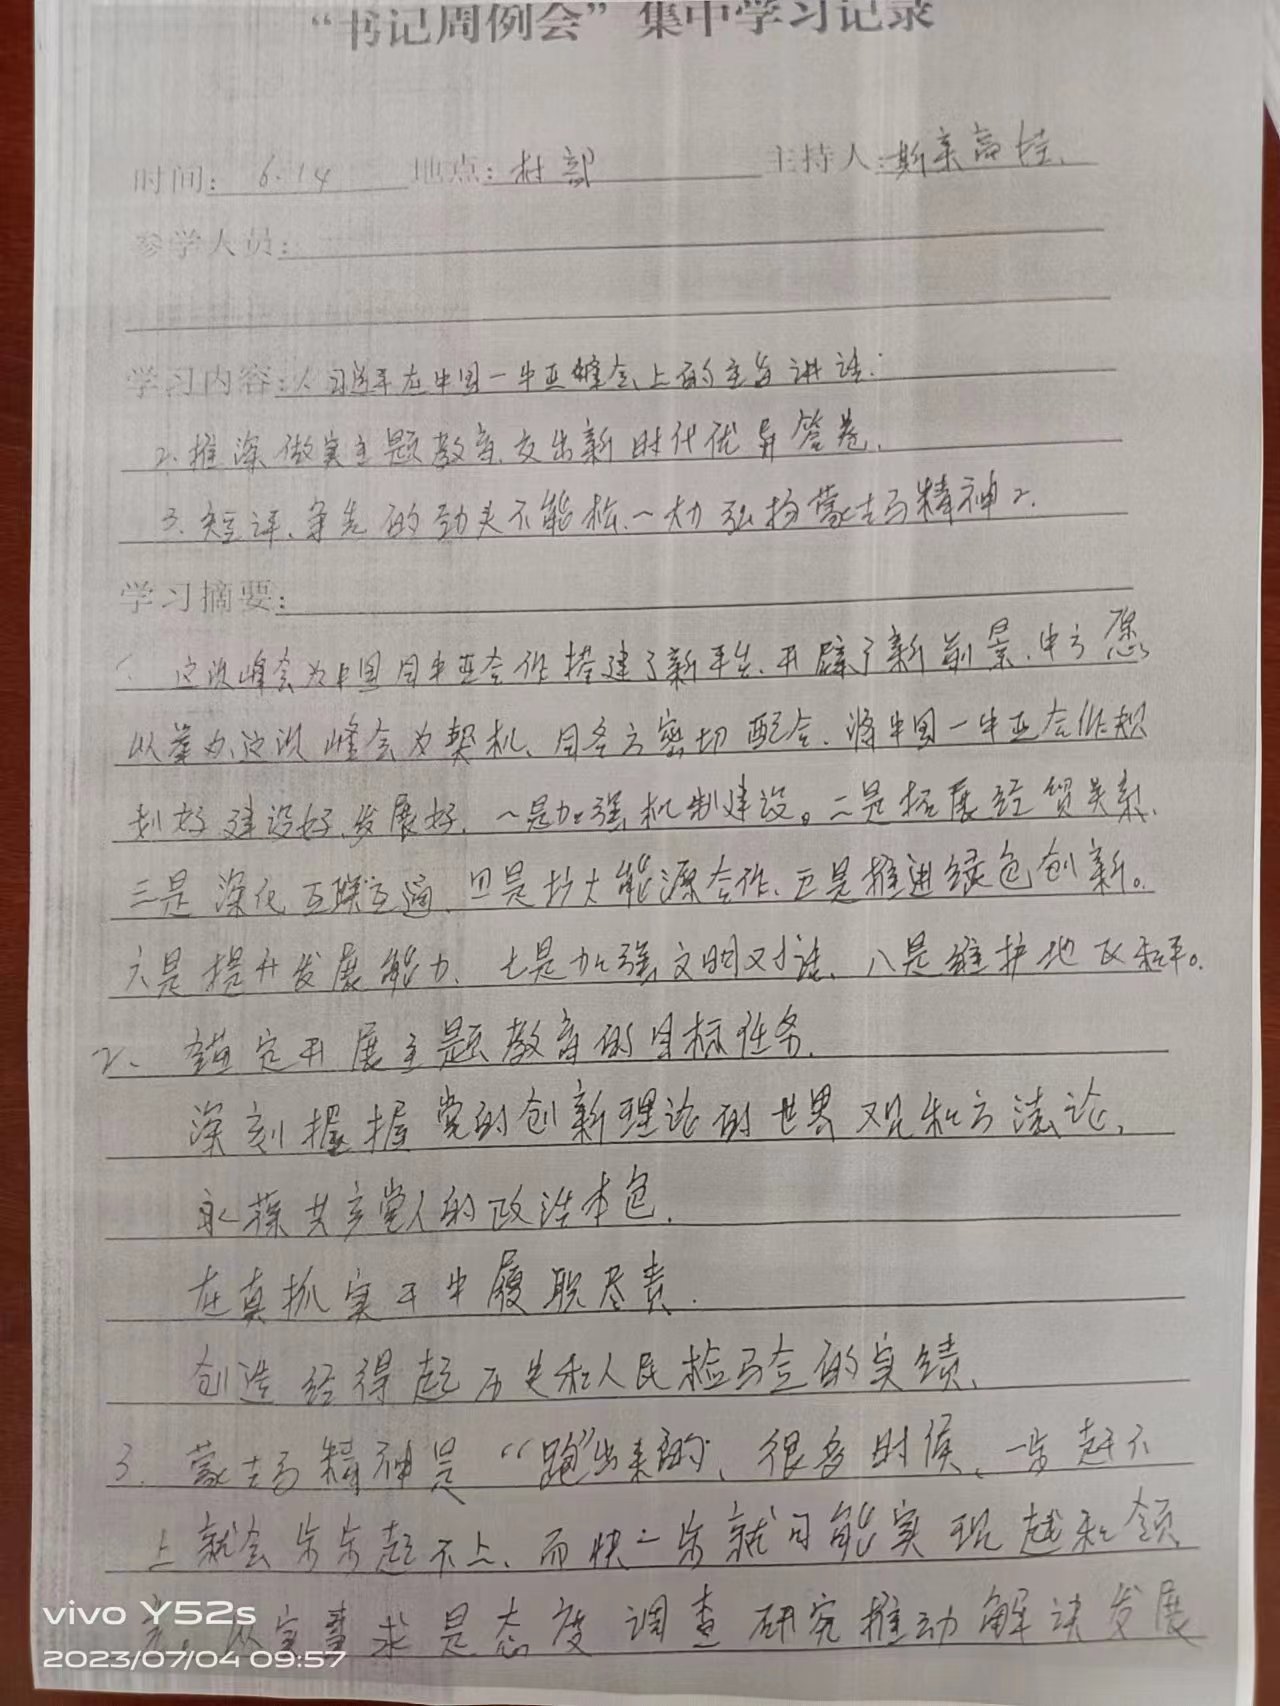 “书记周例会”集中学习记录
时间: 6.14 地点: 村部 主持人:斯
参学人员:
学习内容:1、习近平在中国一中亚峰会上的主旨讲话:
2、推深做实主题教育、交出新时代优异答卷.
3、短评、争先的劲头不能松、一大力弘扬蒙古马精神2.
学习摘要:
1、这次峰会为中国同中亚合作搭建了新平台、开辟了新前景、中方愿
以举办这次峰会为契机、同各方密切配合、将中国一中亚合作规
划好建设好、发展好. 一是加强机制建设。二是拓展经贸关系.
三是深化互联互通、四是扩大能源合作、五是推进绿色创新。
六是提升发展能力、七是加强文明对话、八是维护地区和平。
2、锚定开展主题教育的目标任务.
深刻握握党的创新理论的世界观和方法论.
永葆共产党人的政治本色.
在真抓实干中履职尽责.
创造经得起历史和人民检验的实绩.
3、蒙古马精神是“跑”出来的、很多时候、一步赶不
上就会步步赶不上、而快一步就可能实现赶和领
先。以实事求是态度调查研究推动解决发展
vivo Y52s
2023/07/04 09:57